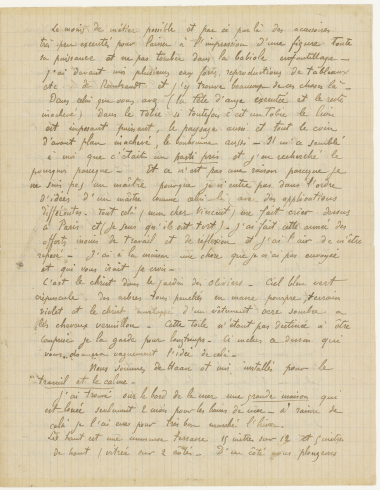 Le moins de métier possible et par ci par là des accessoires
très peu executés pour laisser à l'impression d'une figure toute
sa puissance et ne pas tomber dans la babiole enfantillage —
J'ai devant moi plusieurs eaux fortes, reproductions de tableaux
etc de Rembrandt et j'y trouve beaucoup de ces choses là —
Dans celui que vous avez (la tête d'ange executée et le reste
maché) dans le Tobie si toutefois c'est un Tobie le lion
est imposant puissant, le paysage aussi et tout le coin
d'avant plan maché, le bonhomme aussi — Il m'a semblé
à moi que c'était un parti pris et j'en recherche le
pourquoi pourquoi — Et ce n'est pas une raison parceque je
ne suis pas un maître pourquoi je n'entre pas dans l'ordre
d'idées d'un maître comme celui là avec des applications
différentes. Tout cela (mon cher Vincent) me fait crier dessus
à Paris et (je sens qu'ils ont tort). J'ai fait cette année des
efforts inouis de travail et de reflexion et j'ai l'air de m'être
reposé — J'ai à la maison une chose que je n'ai pas envoyée
et qui vous irait je crois —
C'est le christ dans le jardin des oliviers — Ciel bleu vert
crépuscule, des arbres tous penchés en masse pourpre, terrain
violet et le christ enveloppé d'un vêtement ocre sombre a
les cheveux vermillon — Cette toile n'étant pas destinée à être
comprise je la garde pour longtemps. Ci inclus ce dessin qui
vous donnera vaguement l'idée de cela —
Nous sommes de Haan et moi installés pour le
travail et le calme —
J'ai trouvé sur le bord de la mer une grande maison qui
est louée seulement 2 mois pour les bains de mer — à raison de
cela je l'ai eue pour très bon marché l'hiver.
Le haut est une immense terrasse 15 mètres sur 12 et 5 mètres
de haut, vitrée sur 2 côtés — D'un côté nous plongeons